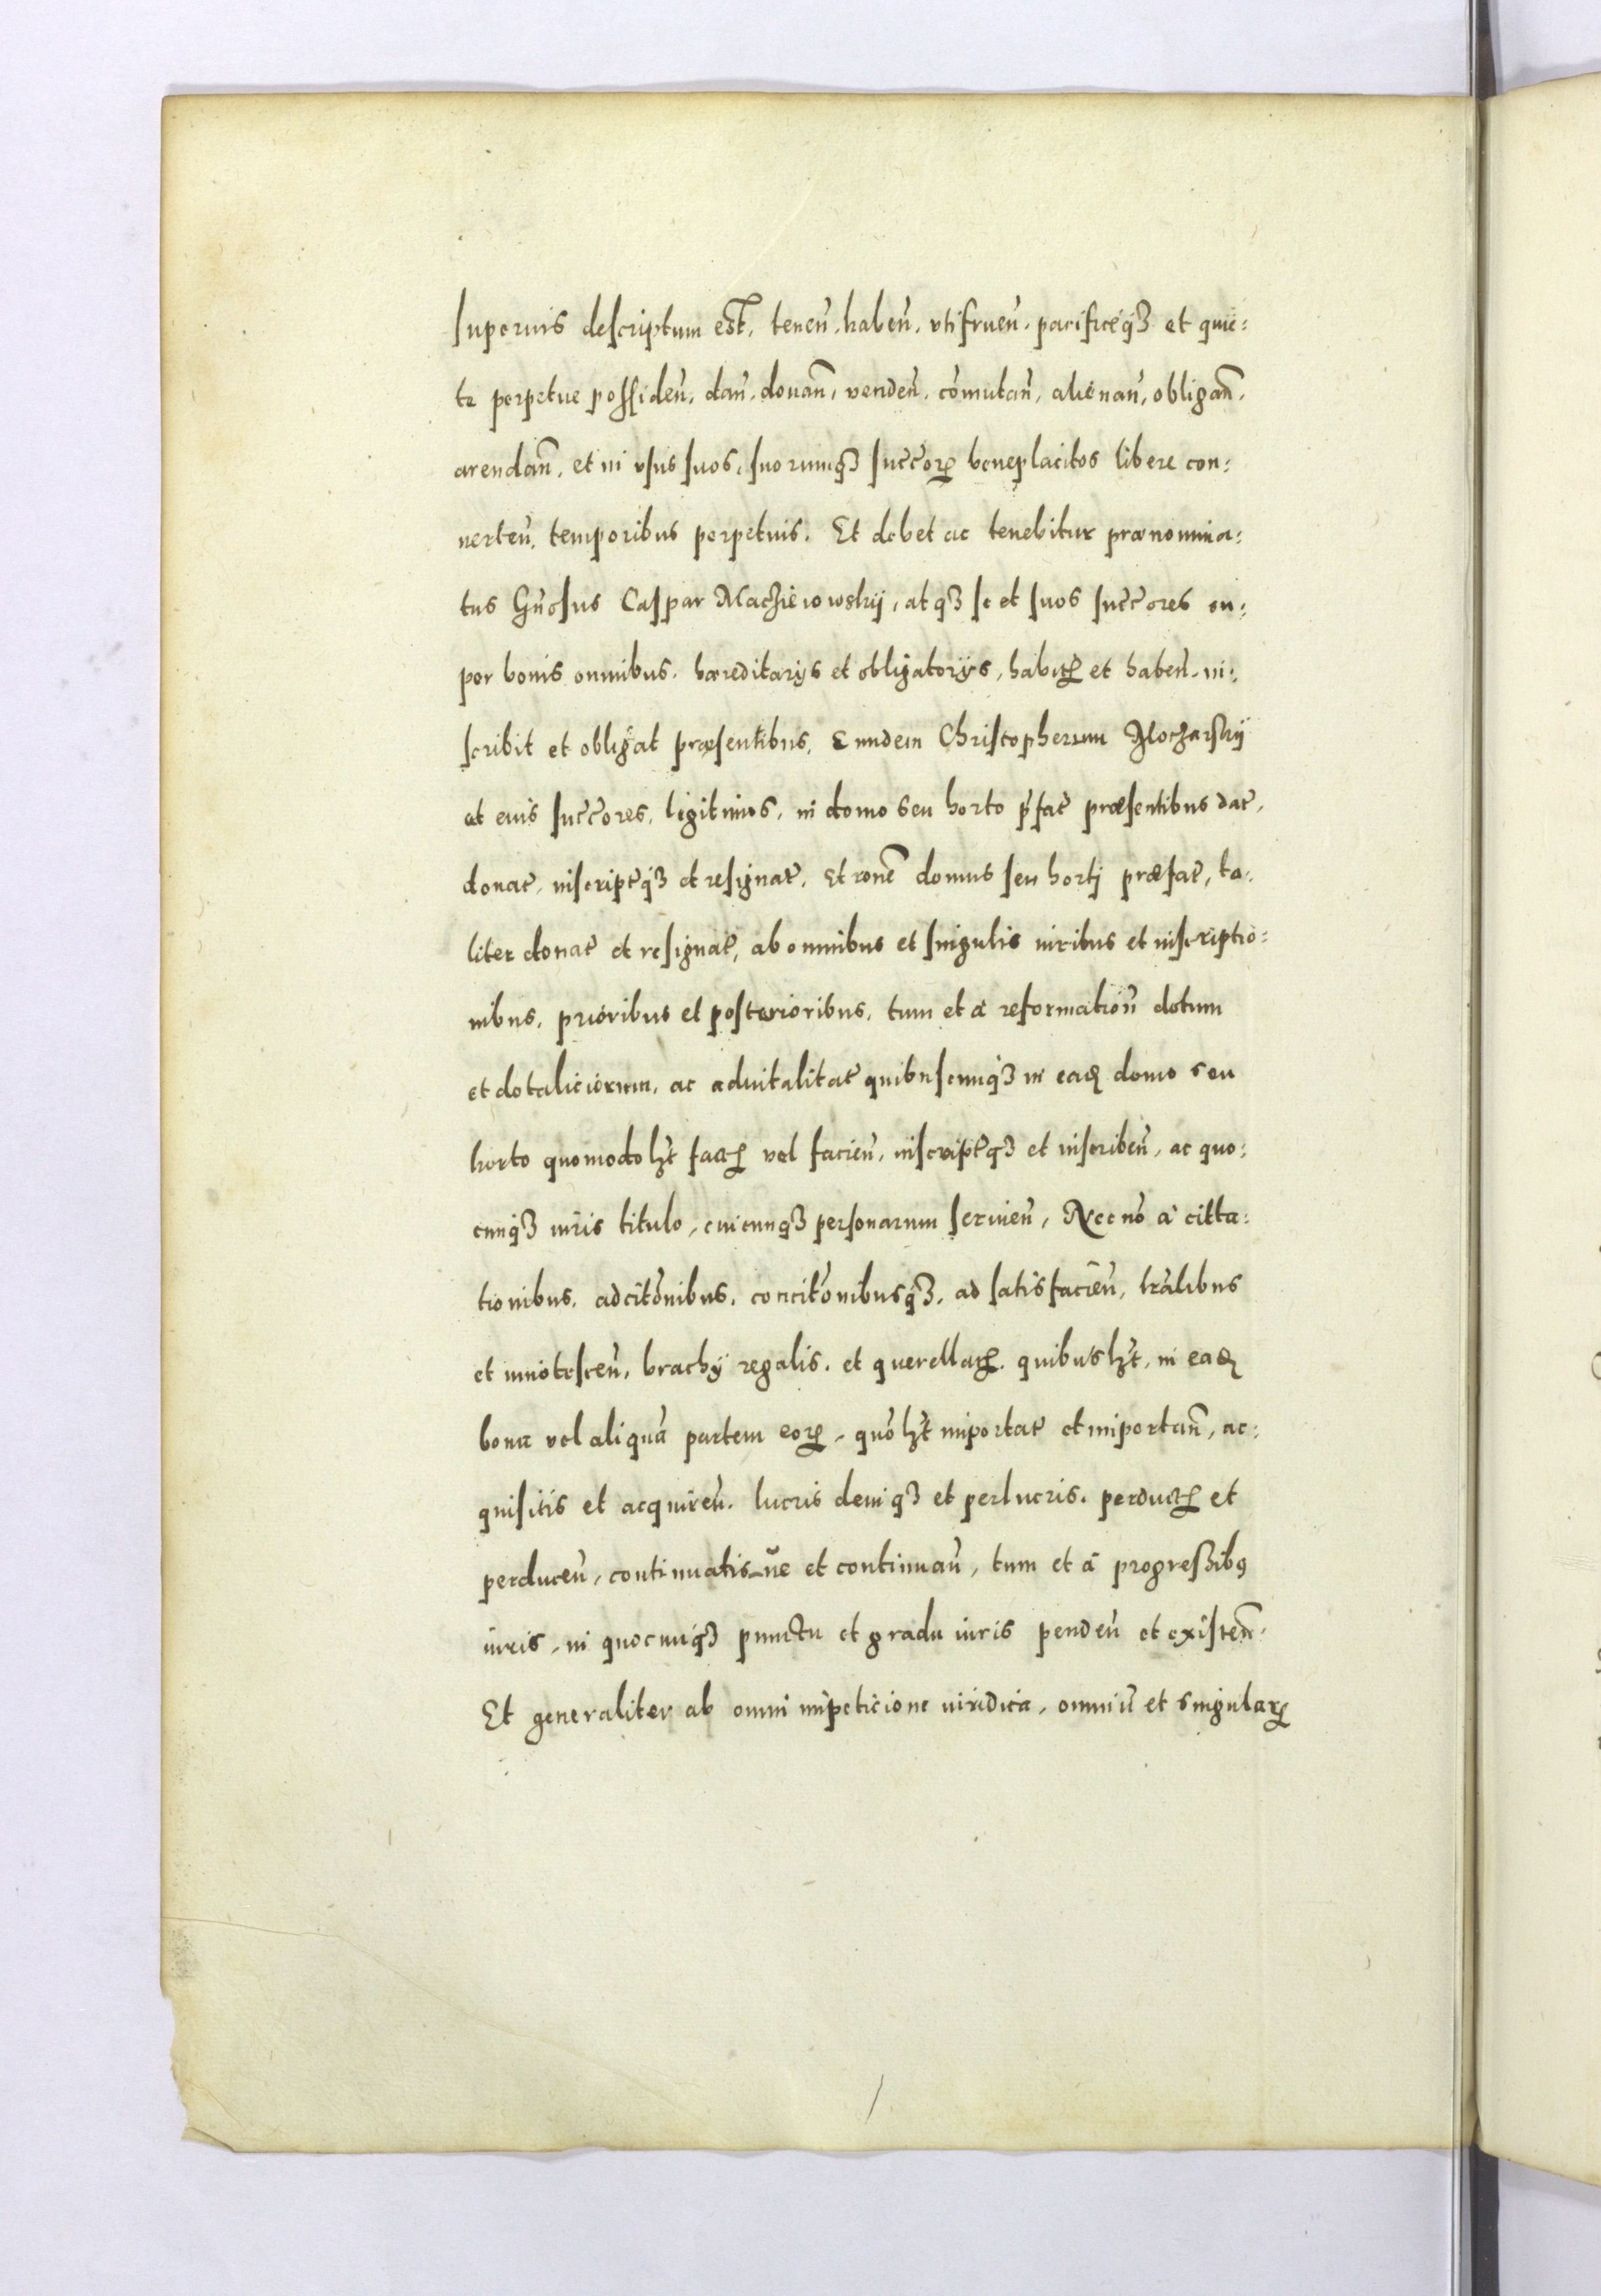 superius descriptum est, tenen̄. haben̄. vtifruen̄. pacificeqꝫ et quie:
te perpetue possiden̄. dan̄. donan̄, venden̄. cōmutan̄, alienan̄, obligan̄.
arendan̄. et in vsus suos, suorumqꝫ succorꝝ beneplacitos libere con:
uerten̄. temporibus perpetuis. Et debet ac tenebitur prænomina:
tus Gn̄osus Caspar Maczieiowskij, atqꝫ se et suos succores su:
per bonis omnibus. hæreditarijs et obligatorijs, habitꝭ et haben̄. in:
scribit et obligat præsentibus, Eundem Christopherum Moczarskij
et euis succores, legitimos, in domo seu horto p̄fat̄ præsentibus dat̄,
donat̄, inscript̄qꝫ et resignat̄. Et ron̄e domus seu hortj præfat̄, ta:
liter donat̄ et resignat̄, ab omnibus et singulis iuribus et inscriptio:
nibus, prioribus et posterioribus, tum et à reformation̄ dotum
et dotaliciorum, ac aduitalitat̄ quibuscumqꝫ in eadꝫ domo seu
horto quomodolꝫt factꝭ vel facien̄, inscript̄qꝫ et inscriben̄, ac quo:
cunqꝫ iuris titulo, cuicunqꝫ personarum seruien̄, Nec nō à citta:
tionibus, adcitōnibus, concitōnibusqꝫ, ad satisfacien̄, lr̄alibus
et innotescen̄, brachij regalis. et querellatꝭ. quibuslꝫt, in eadꝫ
bona vel aliquā partem eorꝝ, quōlꝫt importat̄ et importan̄, ac:
quisitis et acquiren̄. lucris deniqꝫ et perlucris. perductꝭ et
perducen̄, continuatis-ue et continuan̄, tum et à progressibꝰ
iuris, in quocunqꝫ punctu et gradu iuris penden̄ et existen̄.
Et generaliter ab omni impeticione iuridica, omniū et singularꝝ